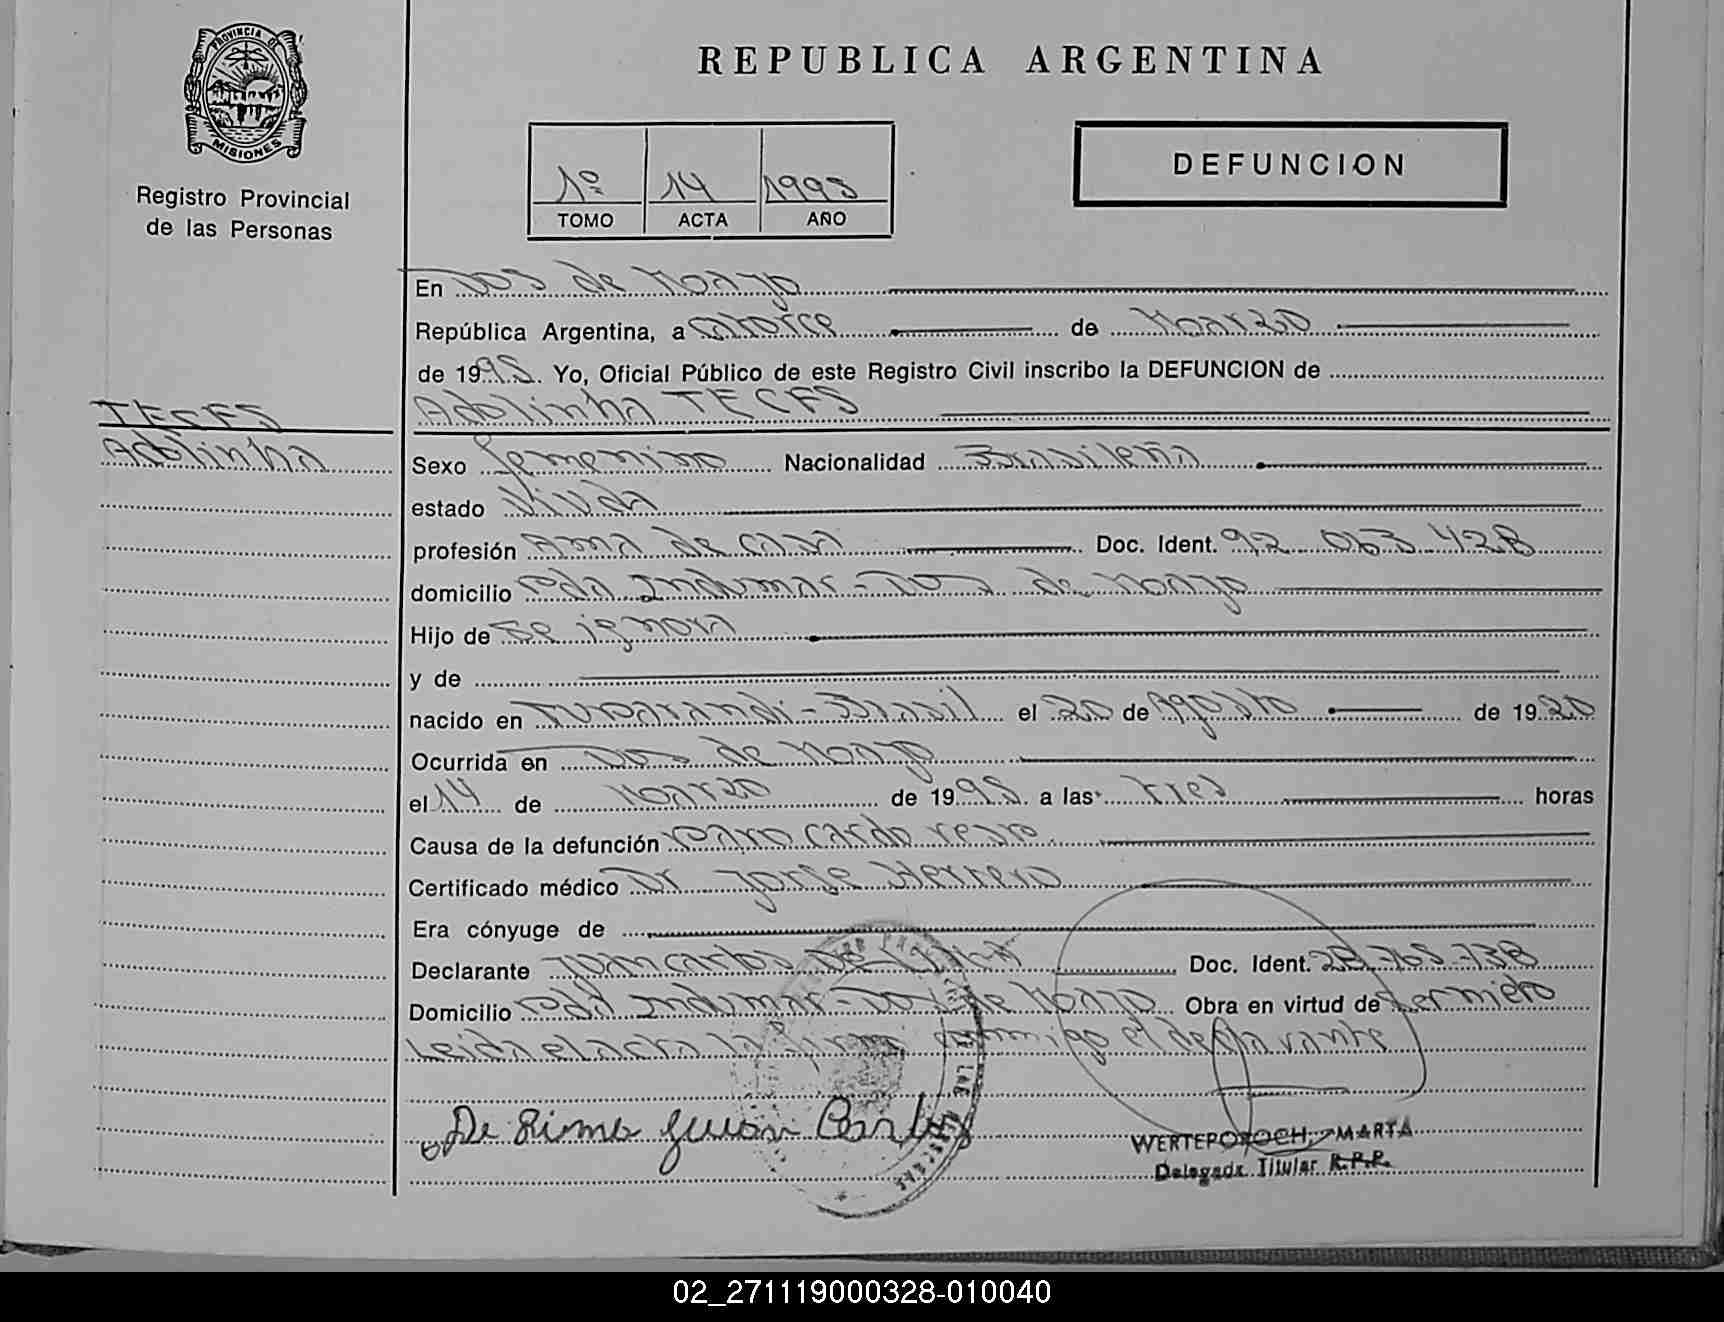 PROVINCIA DE
MISIONES
Registro Provincial
de las Personas
REPUBLICA ARGENTINA
1º 14 1995
TOMO ACTA AÑO
DEFUNCION
En Dos de Mayo
República Argentina, a catorce de Marzo
de 1995. Yo, Oficial Público de este Registro Civil inscribo la DEFUNCION de
Adolinha TECFS
TECFS
Adolinha
Sexo femenino Nacionalidad Brasileña
estado Viuda
profesión Ama de casa Doc. Ident. 92 063 428
domicilio Indumar - Dos de Mayo
Hijo de Se ignora
y de
nacido en - Brasil el 20 de Agosto de 1920
Ocurrida en Dos de Mayo
el 14 de Marzo de 1995 a las tres horas
Causa de la defunción paro cardo resp
Certificado médico Dr Jorge Herrero
Era cónyuge de
Declarante Juan Carlos De Doc. Ident.
Domicilio Indumar - Dos de Mayo Obra en virtud de
Leida el acta la firma conmigo el declarante
De Lima Juan Carlos
WERTEPOROCH, MARTA
Delegada Titular R.P.P.
02_271119000328-010040